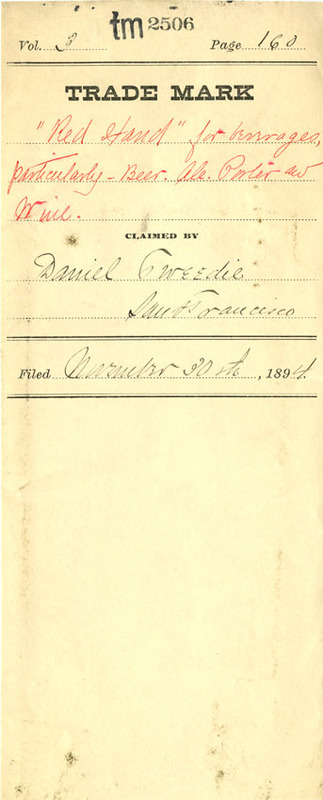 tm 2506
Vol. 3 Page 160
TRADE MARK
"Red Hand" for beverages,
particularly - Beer. Ale. Porter and
Wine.
CLAIMED BY
Daniel Tweedie
San Francisco
Filed November 30th, 1894.